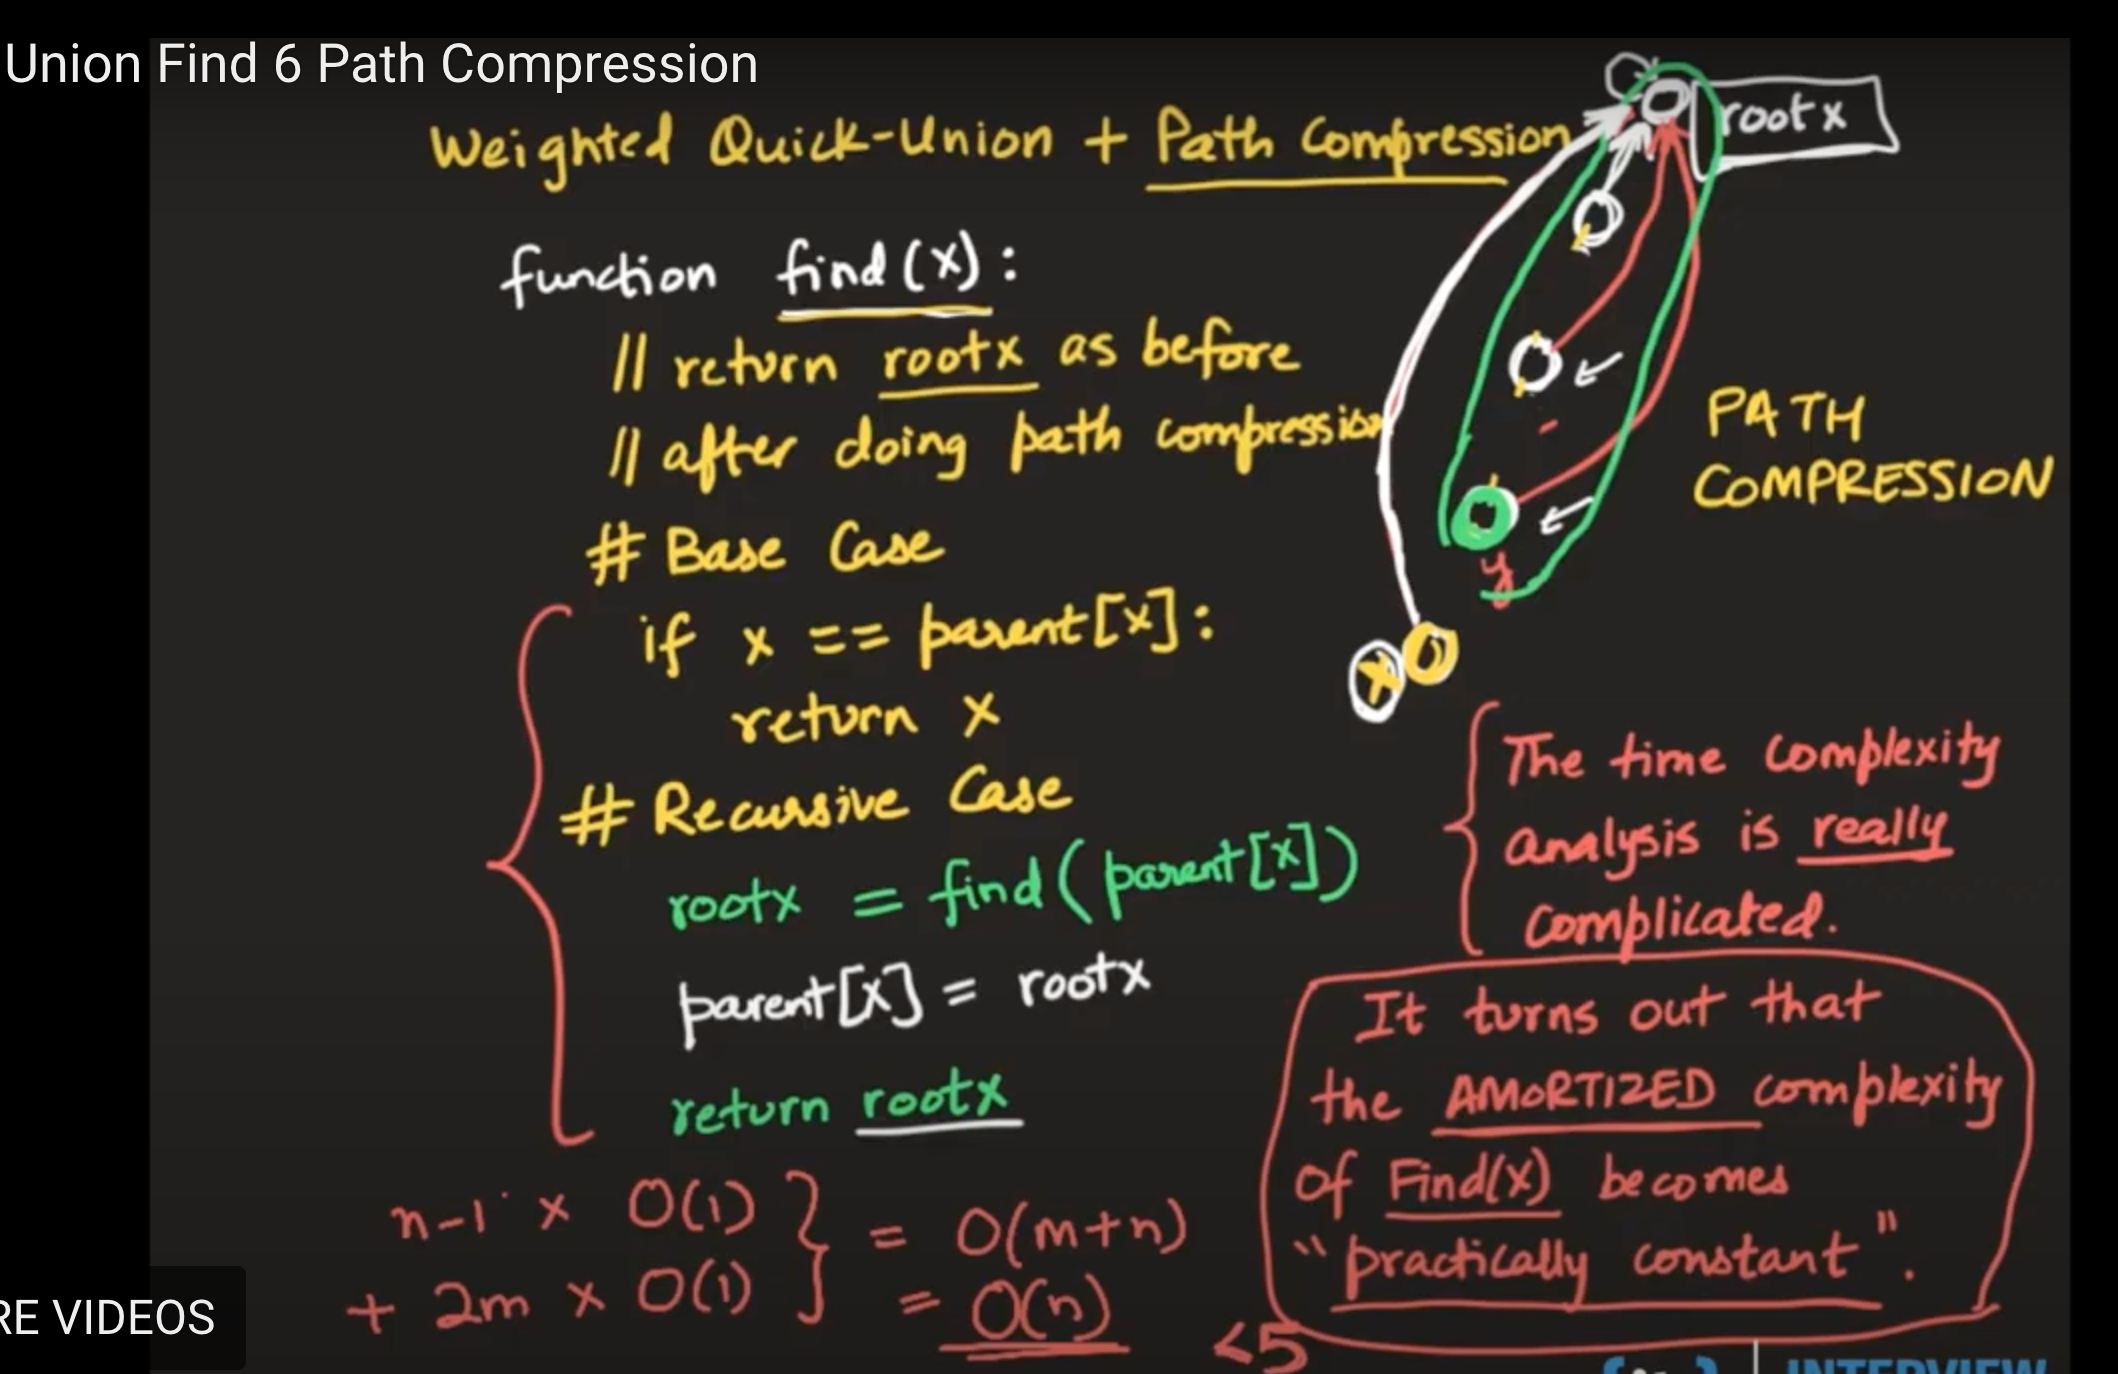 Union Find 6 Path Compression
Weighted Quick-Union + Path Compression
rootx
function find(x):
// return rootx as before
// after doing path compression
PATH
COMPRESSION
# Base Case
y
if x == parent[x]:
x
return x
# Recursive Case
rootx = find(parent[x])
parent[x] = rootx
return rootx
The time complexity
analysis is really
complicated.
It turns out that
the AMORTIZED complexity
of Find(x) becomes
"practically constant".
n-1 x O(1)
+ 2m x O(1)
} = O(m+n)
= O(n)
<5
RE VIDEOS
INTERVIEW